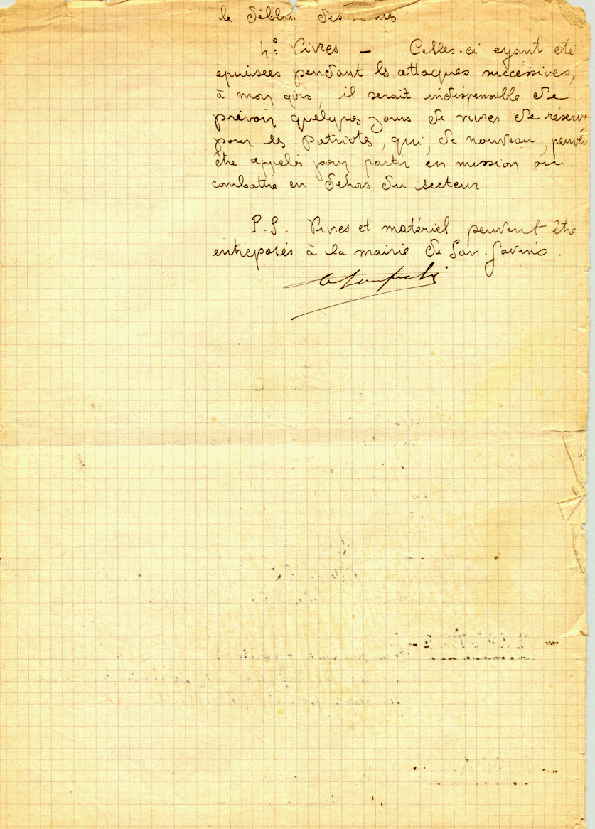 le
4° Vivres — Celles-ci ayant été
épuisées pendant les attaques successives,
à mon avis, il serait indispensable de
prévoir quelques jours de vivres de réserve
pour les Patriotes, qui, de nouveau, peuvent
être appelés pour partir en mission ou
combattre en dehors du secteur
P.S. Vivres et matériel peuvent être
entreposés à la mairie de San-Gavino.